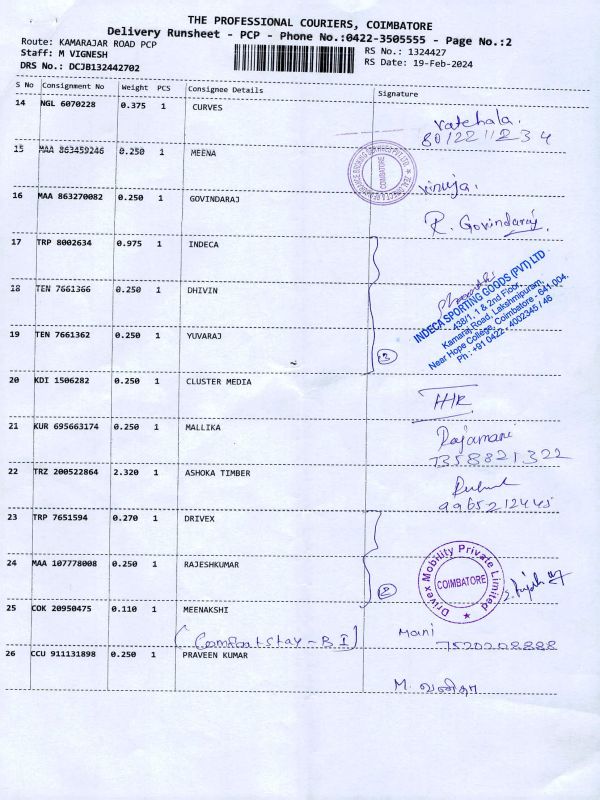 THE PROFESSIONAL COURIERS, COIMBATORE
Delivery Runsheet - PCP - Phone No.:0422-3505555 - Page No.:2
Route: KAMARAJAR ROAD PCP
RS No.: 1324427
Staff: M VIGNESH
RS Date: 19-Feb-2024
DRS No.: DCJB132442702
S No Consignment No Weight PCS Consignee Details Signature
14 NGL 6070228 0.375 1 CURVES
8012211234
15 MAA 863459246 0.250 1 MEENA
COIMBATORE
16 MAA 863270082 0.250 1 GOVINDARAJ
R. Govindaraj
17 TRP 8002634 0.975 1 INDECA
INDECA SPORTING GOODS (PVT) LTD
438/1, 1 & 2nd Floor,
Kamaraj Road, Lakshmipuram,
Near Hope College, Coimbatore - 641 004.
Ph : +91 0422 - 4002345 / 46
18 TEN 7661366 0.250 1 DHIVIN
19 TEN 7661362 0.250 1 YUVARAJ
3
20 KDI 1506282 0.250 1 CLUSTER MEDIA
21 KUR 695663174 0.250 1 MALLIKA
Rajamani
7358821322
22 TRZ 200522864 2.320 1 ASHOKA TIMBER
9965212445
23 TRP 7651594 0.270 1 DRIVEX
Drivex Mobility Private Limited
COIMBATORE
24 MAA 107778008 0.250 1 RAJESHKUMAR
2
25 COK 20950475 0.110 1 MEENAKSHI
(Comfort stay - B I)
Mani
7520208888
26 CCU 911131898 0.250 1 PRAVEEN KUMAR
M. வனிதா